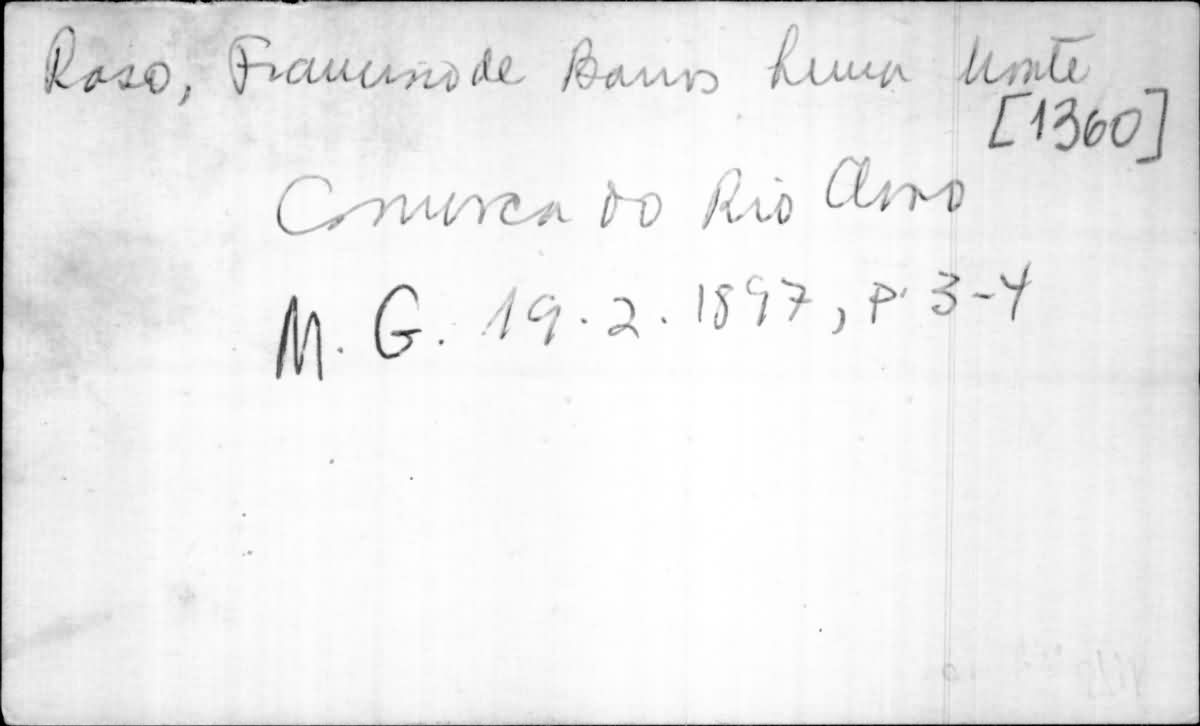 Raso, Francisco de Barros Lima Monte
[1360]
Comarca do Rio Claro
M. G. 19.2.1897, p. 3-4